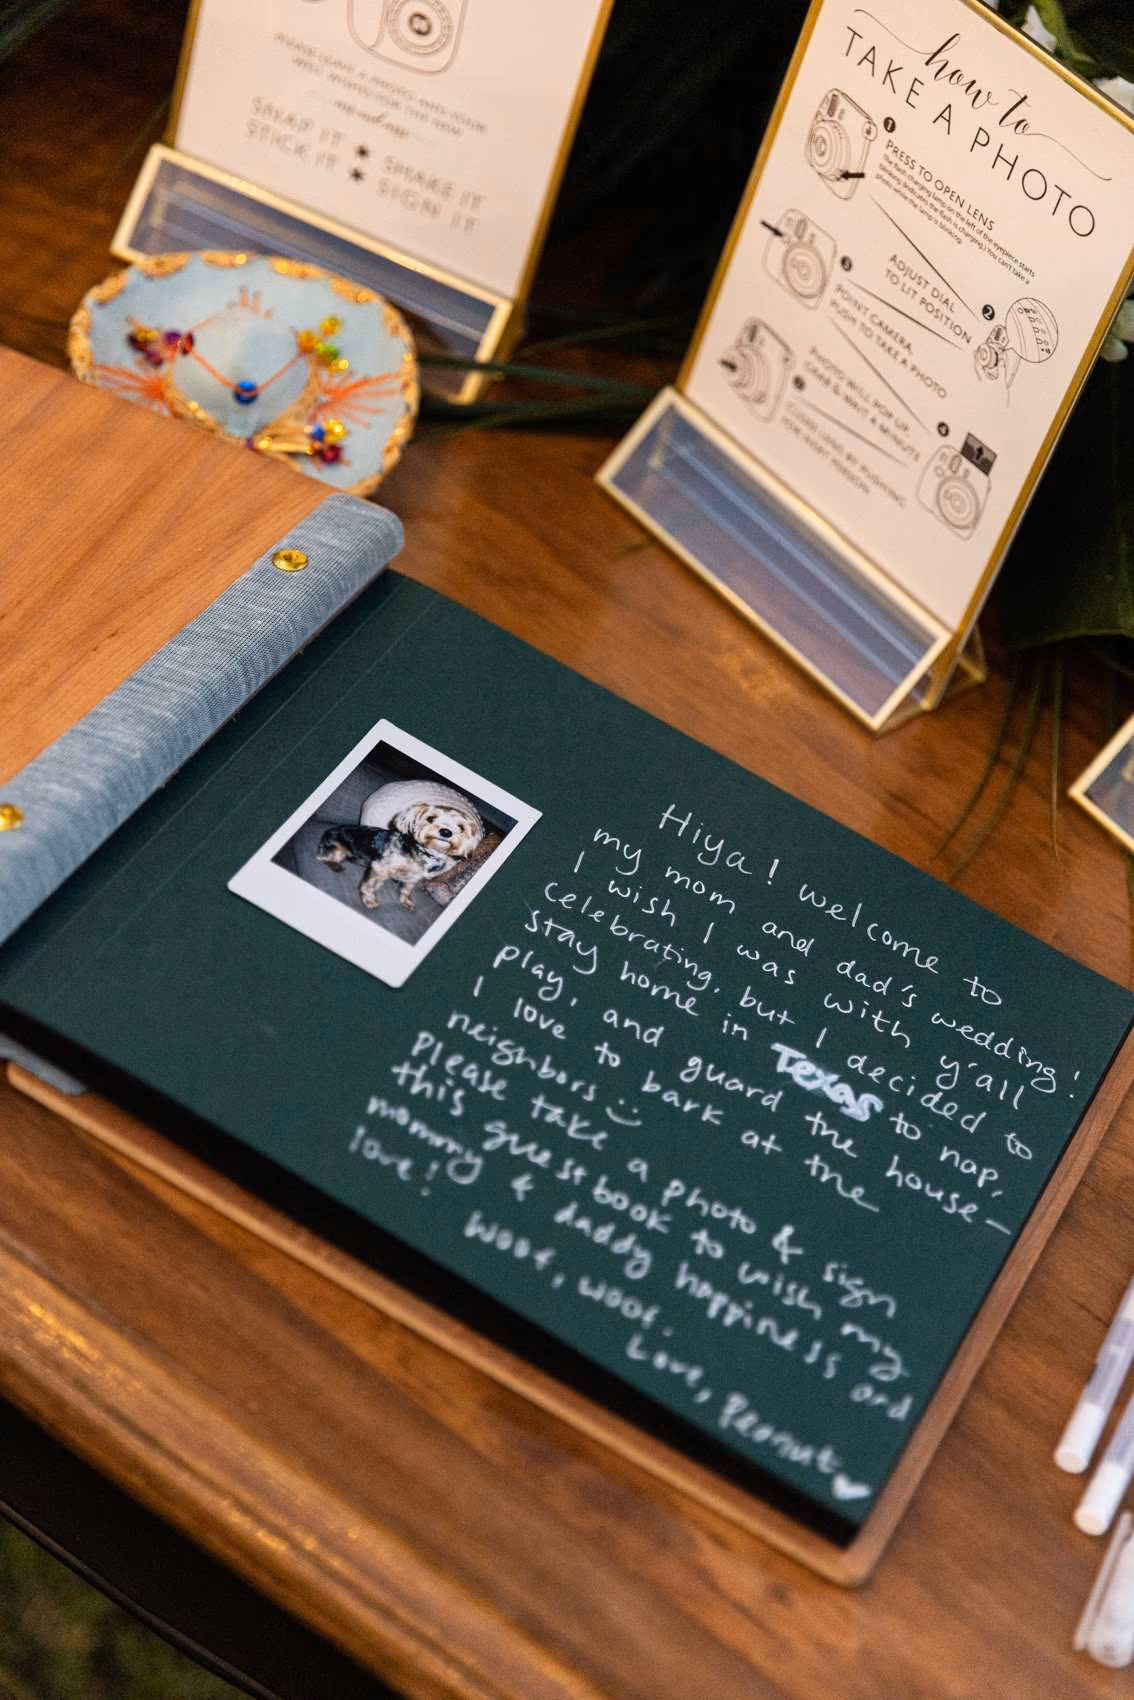 PLEASE LEAVE A PHOTO AND YOUR
WELL WISHES FOR THE NEW
SNAP IT * SHAKE IT
STICK IT * SIGN IT
how to
TAKE A PHOTO
1
PRESS TO OPEN LENS
The flash charging lamp on the left of the eyepiece starts
blinking (indicates the flash is charging.) You can't take a
photo while the lamp is blinking.
2
ADJUST DIAL
TO LIT POSITION
3
POINT CAMERA,
PUSH TO TAKE A PHOTO
4
PHOTO WILL POP UP
GRAB & WAIT A MINUTE
5
CLOSE LENS BY PUSHING
FOR NEXT PERSON
Hiya! welcome to
my mom and dad's wedding!
I wish I was with y'all
celebrating, but I decided to
stay home in Texas to nap,
play, and guard the house-
I love to bark at the
neighbors
Please take a photo & sign
this guestbook to wish my
mommy & daddy happiness and
love!
Woof, woof.
Love, Peanut